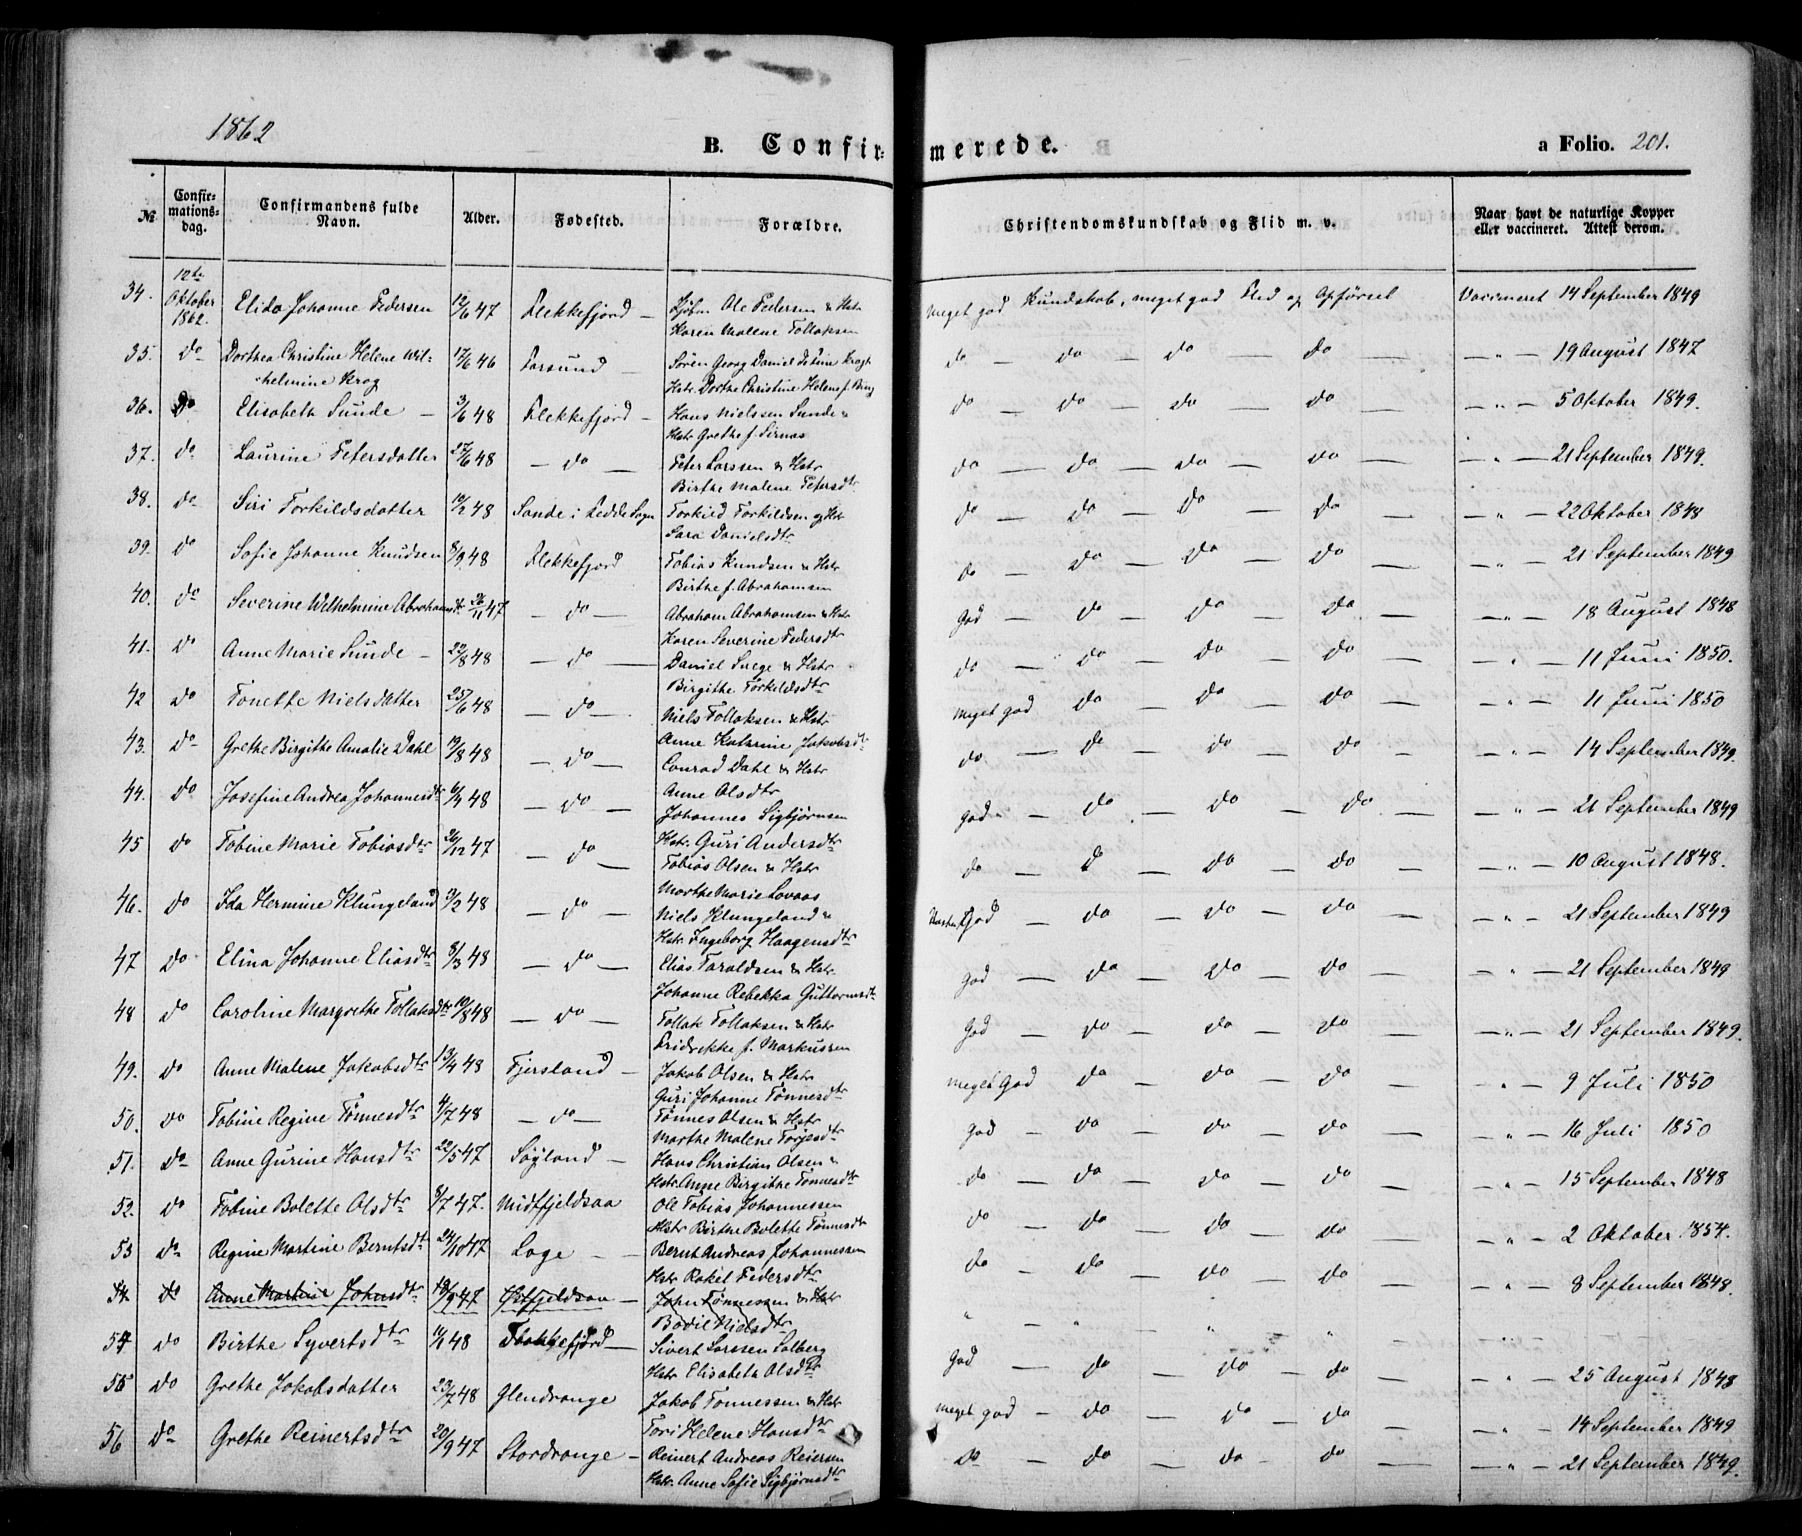 1862
B. Confirmerede.
a Folio. 201.
№
Confirmations-dag.
Confirmandens fulde Navn.
Alder.
Fødested.
Forældre.
Christendomskundskab og Flid m. v.
Naar havt de naturlige Kopper eller vaccineret. Attest derom.
34. 12te Oktober 1862. Elida Johanne Pedersen 12/6 47 Flekkefjord — Ole Pedersen & Hstr Karen Malene Tollaksen meget god Kundskab, meget god Flid og Opførsel Vaccineret 14 September 1849
35. do Dorthea Christine Helene Wilhelmine Krog 17/6 46 Farsund — Sören Georg Daniel Krogh Hstr Dorthe Christine Helene f. do — do — do — do — — " — 19 August 1847
36. do Elisabeth Sunde — 3/6 48 Flekkefjord — Hans Nielssen Sunde & Hstr Grethe f. Sirnas do — do — do — do — — " — 5 Oktober 1849.
37. do Laurine Petersdatter 27/6 48 — do — Peter Larssen & Hstr Birthe Malene Petersdtr do — do — do — do — — " — 21 September 1849.
38. do Siri Torkildsdatter 12/2 48 Sande i Fedde Sogn Torkild Torkildsen og Hstr Sara Danielsdtr do — do — do — do — — " — 22 Oktober 1848
39. do Sofie Johanne Knudsen 8/9 48 Flekkefjord Tobias Kundsen & Hstr Birthe f. Abrahamsen do — do — do — do — — " — 21 September 1849
40. do Severine Wilhelmine Abrahamsdtr 26/11 47 — do — Abraham Abrahamsen & Hstr Karen Severine Pedersdtr God — do — do — do — — " — 18 August 1848
41. do Anne Marie Sunde — 22/8 48 — do — Daniel & Hstr Birgithe Torkildsdtr do — do — do — do — — " — 11 Juni 1850.
42 do Tonette Nielsdatter 25/6 48 — do — Niels Tollaksen & Hstr Anne Katrine Jakobsdtr meget god do — do — do — — " — 11 Juni 1850
43. do Grethe Birgithe Amalie Dahl 19/8 48 — do — Conrad Dahl & Hstr Anne Olsdtr do — do — do — do — — " — 14 September 1849
44. do Josefine Andrea Johannesdtr 6/4 48 — do — Johannes Sigbjørnsen Hstr. Guri Andersdtr god — do — do — do — " — 21 September 1849
45 do Tobine Marie Tobiasdtr 26/12 47 — do — Tobias Olsen & Hstr Marthe Marie Lovaas do — d — do — do — — " — 10 August 1848.
46. do Ida Hermine Klungeland 13/2 48 — do — Niels Klungeland & Hstr Ingeborg Haagensdtr God — do — do — do — — " — 21 September 1849
47 do Elina Johanne Eliasdtr 8/3 48 — do — Elias Taraldsen & Hstr. Johanne Rebekka Guttormsdtr god — do — do — do — — " — 21 September 1849
48 do Caroline Margrethe Tollaksdtr 19/8 48 — do — Tollak Tollaksen & Hstr Fridrikke f. Markussen God — do — do — do — — " — 21 September 1849.
49. do Anne Malene Jakobsdtr 13/4 48 Fjersland — Jakob Olsen & Hstr Guri Johanne Tönnesdtr meget God do — do — do — " — 9 Juli 1850
50. do Tobine Regine Tönnesdtr 4/7 48 — do — Tönnes Olsen & Hstr Marthe Malene Torjesdtr god — do — do — do — " — 16 Juli 1850
51. do Anne Gurine Hansdtr 22/5 47 Søyland — Hans Christian Olsen & Hstr. Anne Birgithe Tönnesdtr do — do — do — do — " — 15 September 1848
52. do Tobine Bolette Olsdtr 8/7 47. Midtfjeldsaa Ole Tobias Johannessen Hstr Birthe Bolette Tönnesdtr do — do — do — do — " — 2 Oktober 1854.
53 do Regine Martine Berntsdtr 24/10 47 Loge — Bernt Andreas Johannessen Hstr Rakel Pedersdtr do — do — do — do — " — 8 September 1848.
54. do Anne Martine Johnsdtr 18/9 47 — John Tönnessen & Hstr Bodil Nielsdtr " — " — " "
54 do Birthe Syvertsdtr 11/1 48 Flekkefjord — Sivert Larssen Solberg Hstr Elisabeth Olsdtr God — do — do — do — " — 25 August 1848
55 do Grethe Jakobsdatter 23/7 48 Glendrange Jakob Tönnessen & Hstr Tori Helene Hansdtr meget god — do — do — do — " — 14 September 1849
56 do Grethe Reinertsdtr 20/9 47 Stordrange — Reinert Andreas Reiersen Hstr. Anne Sofie Sigbjørnsdtr do — do — do — do — — " — 21 September 1849.